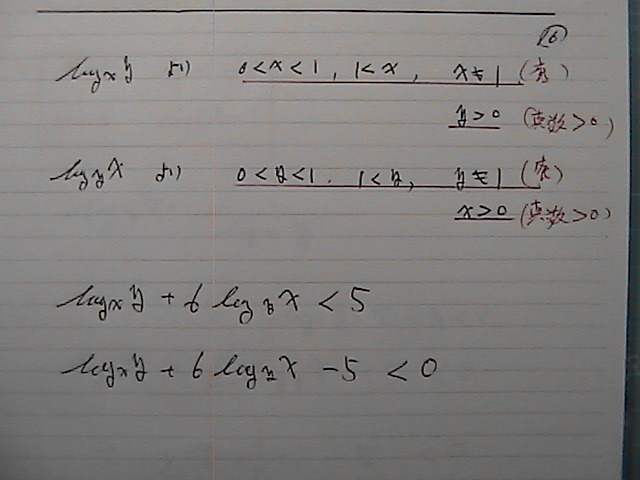 ⑯
log_x y より 0<x<1, 1<x, x≠1 (底)
y>0 (真数>0)
log_y x より 0<y<1, 1<y, y≠1 (底)
x>0 (真数>0)
log_x y + 6 log_y x < 5
log_x y + 6 log_y x - 5 < 0